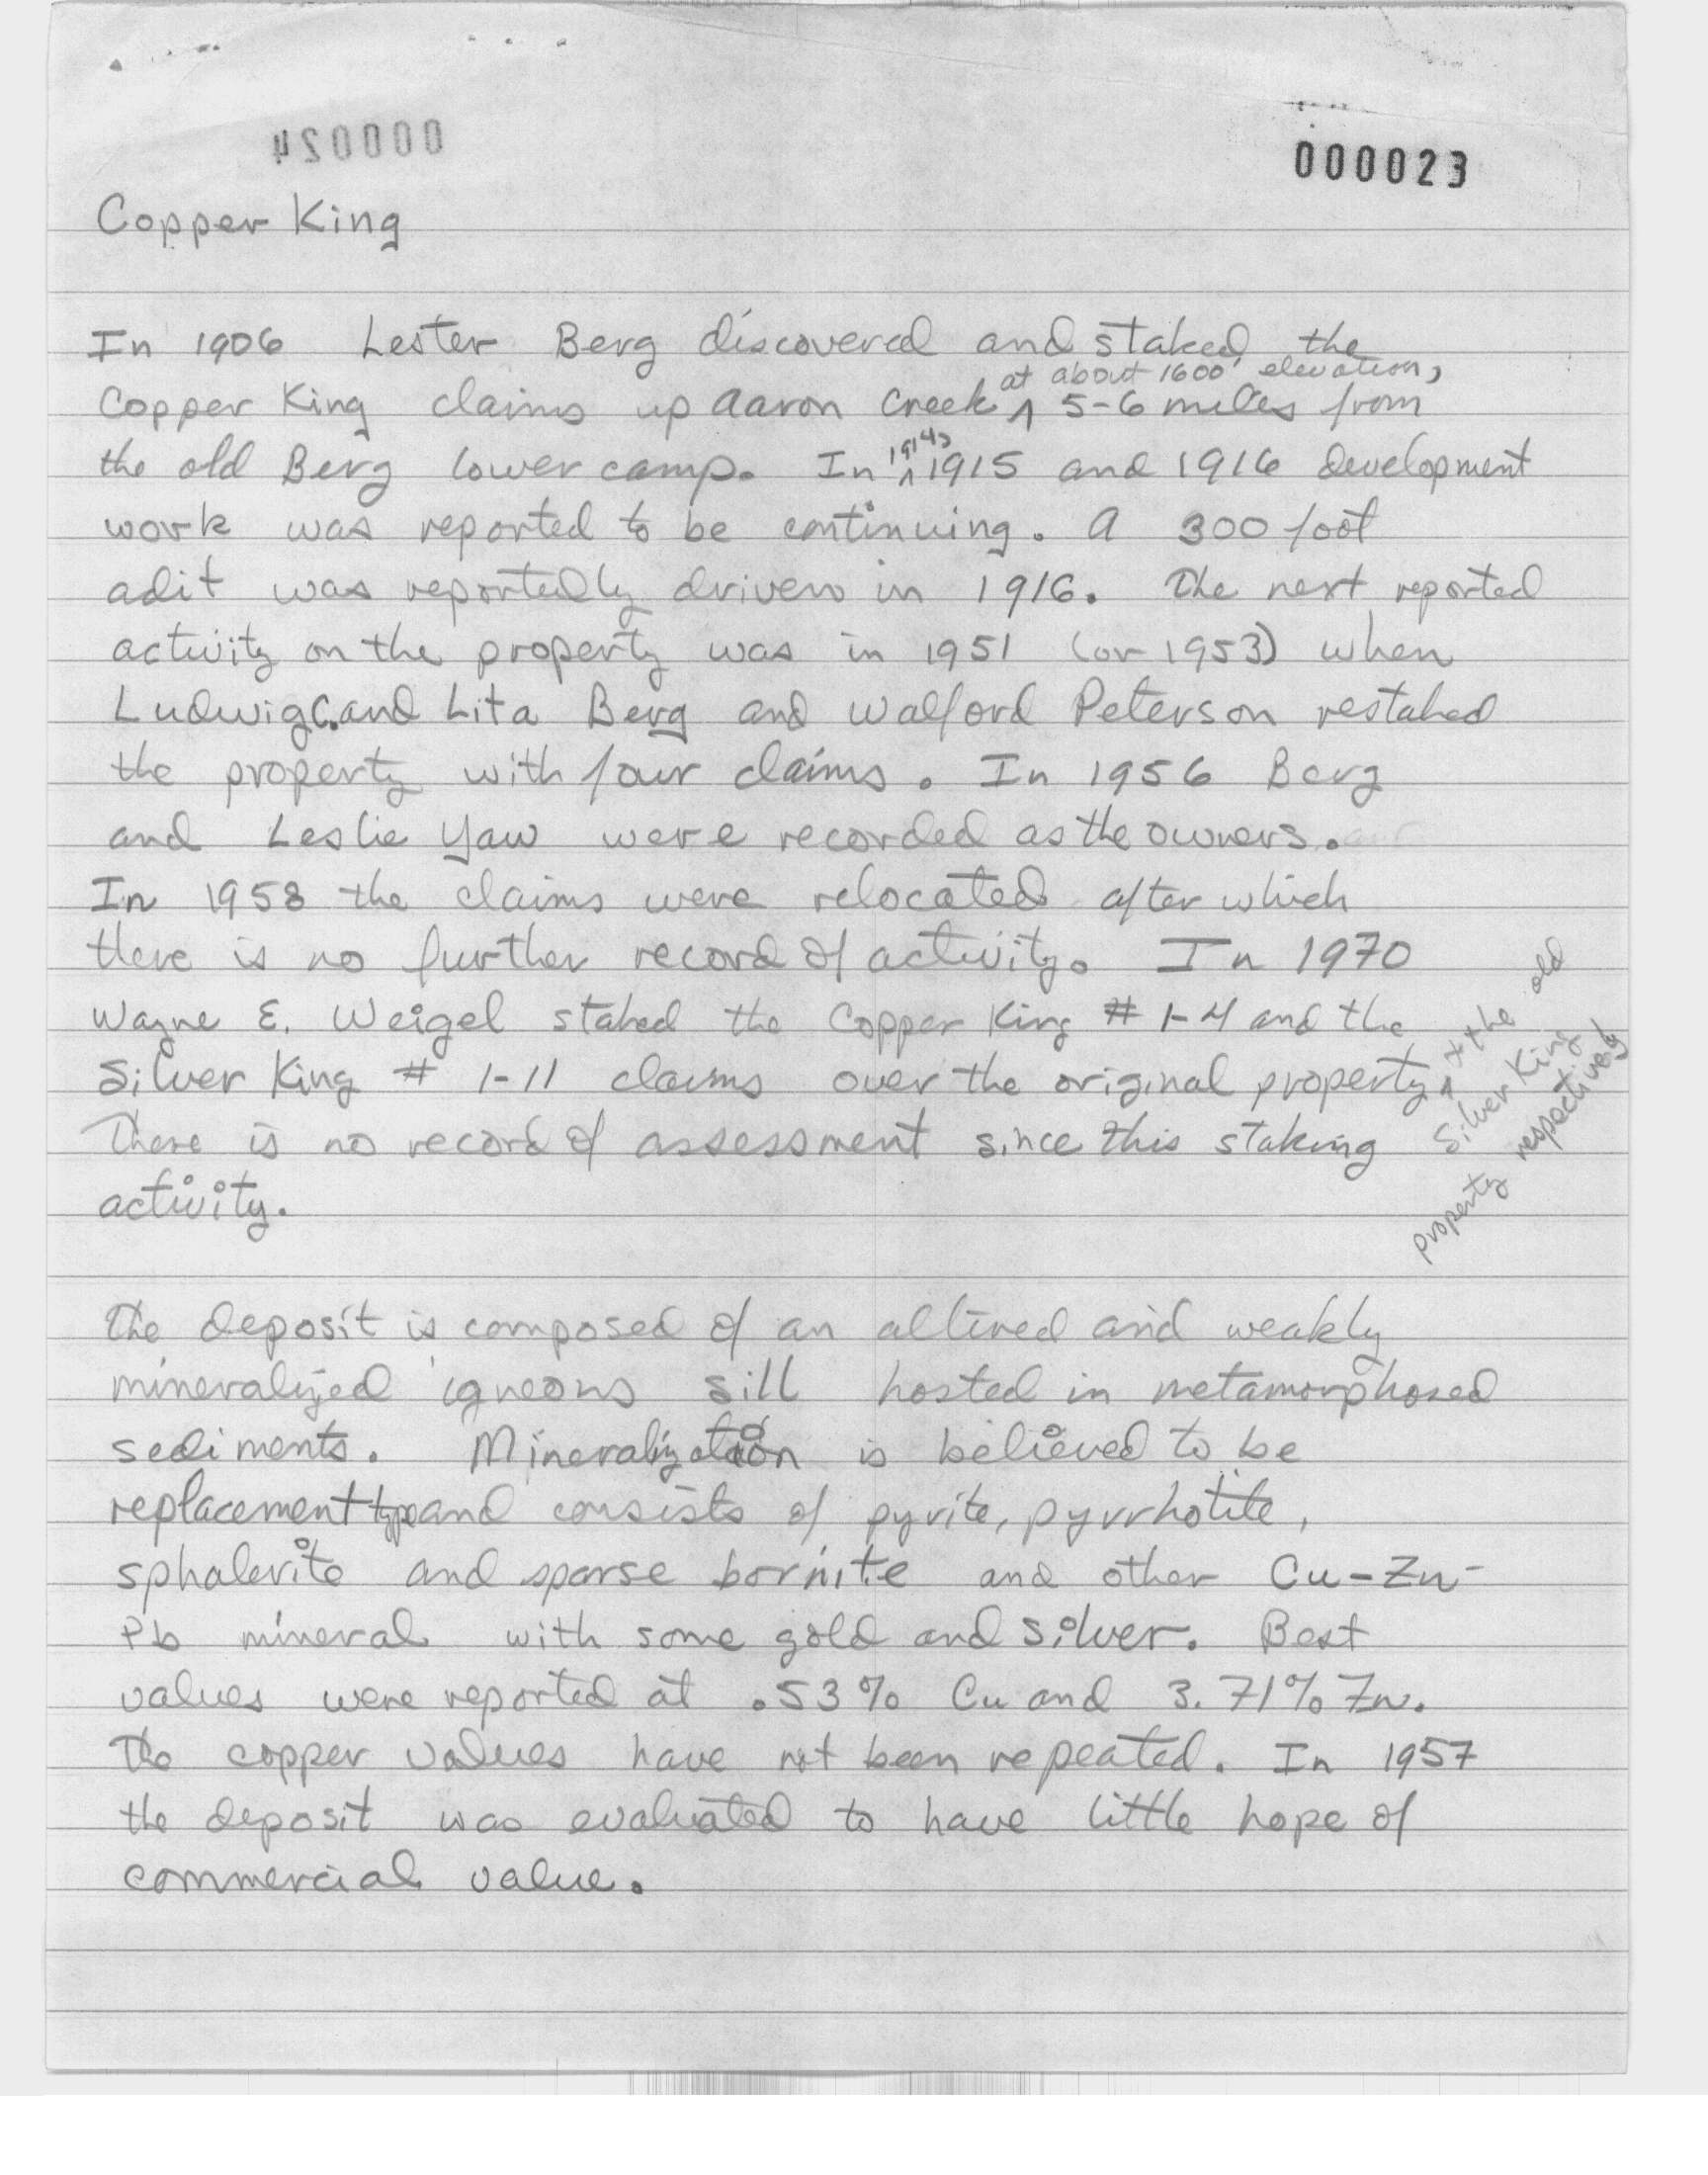 000024
000023
Copper King
In 1906 Lester Berg discovered and staked the
at about 1600' elevation,
Copper King claims up Aaron Creek ^ 5-6 miles from
1914,
the old Berg lower camp. In ^ 1915 and 1916 development
work was reported to be continuing. A 300 foot
adit was reportedly driven in 1916. The next reported
activity on the property was in 1951 (or 1953) when
Ludwig C. and Lita Berg and Walford Peterson restaked
the property with four claims. In 1956 Berg
and Leslie Yaw were recorded as the owners.
In 1958 the claims were relocated after which
there is no further record of activity. In 1970
Wayne E. Weigel staked the Copper King # 1-4 and the
Silver King # 1-11 claims over the original property ^ + the old
Silver King
property respectively
There is no record of assessment since this staking
activity.
The deposit is composed of an altered and weakly
mineralized igneous sill hosted in metamorphosed
sediments. Mineralization is believed to be
replacement type and consists of pyrite, pyrrhotite,
sphalerite and sparse bornite and other Cu-Zn-
Pb mineral with some gold and silver. Best
values were reported at .53% Cu and 3.71% Zn.
The copper values have not been repeated. In 1957
the deposit was evaluated to have little hope of
commercial value.